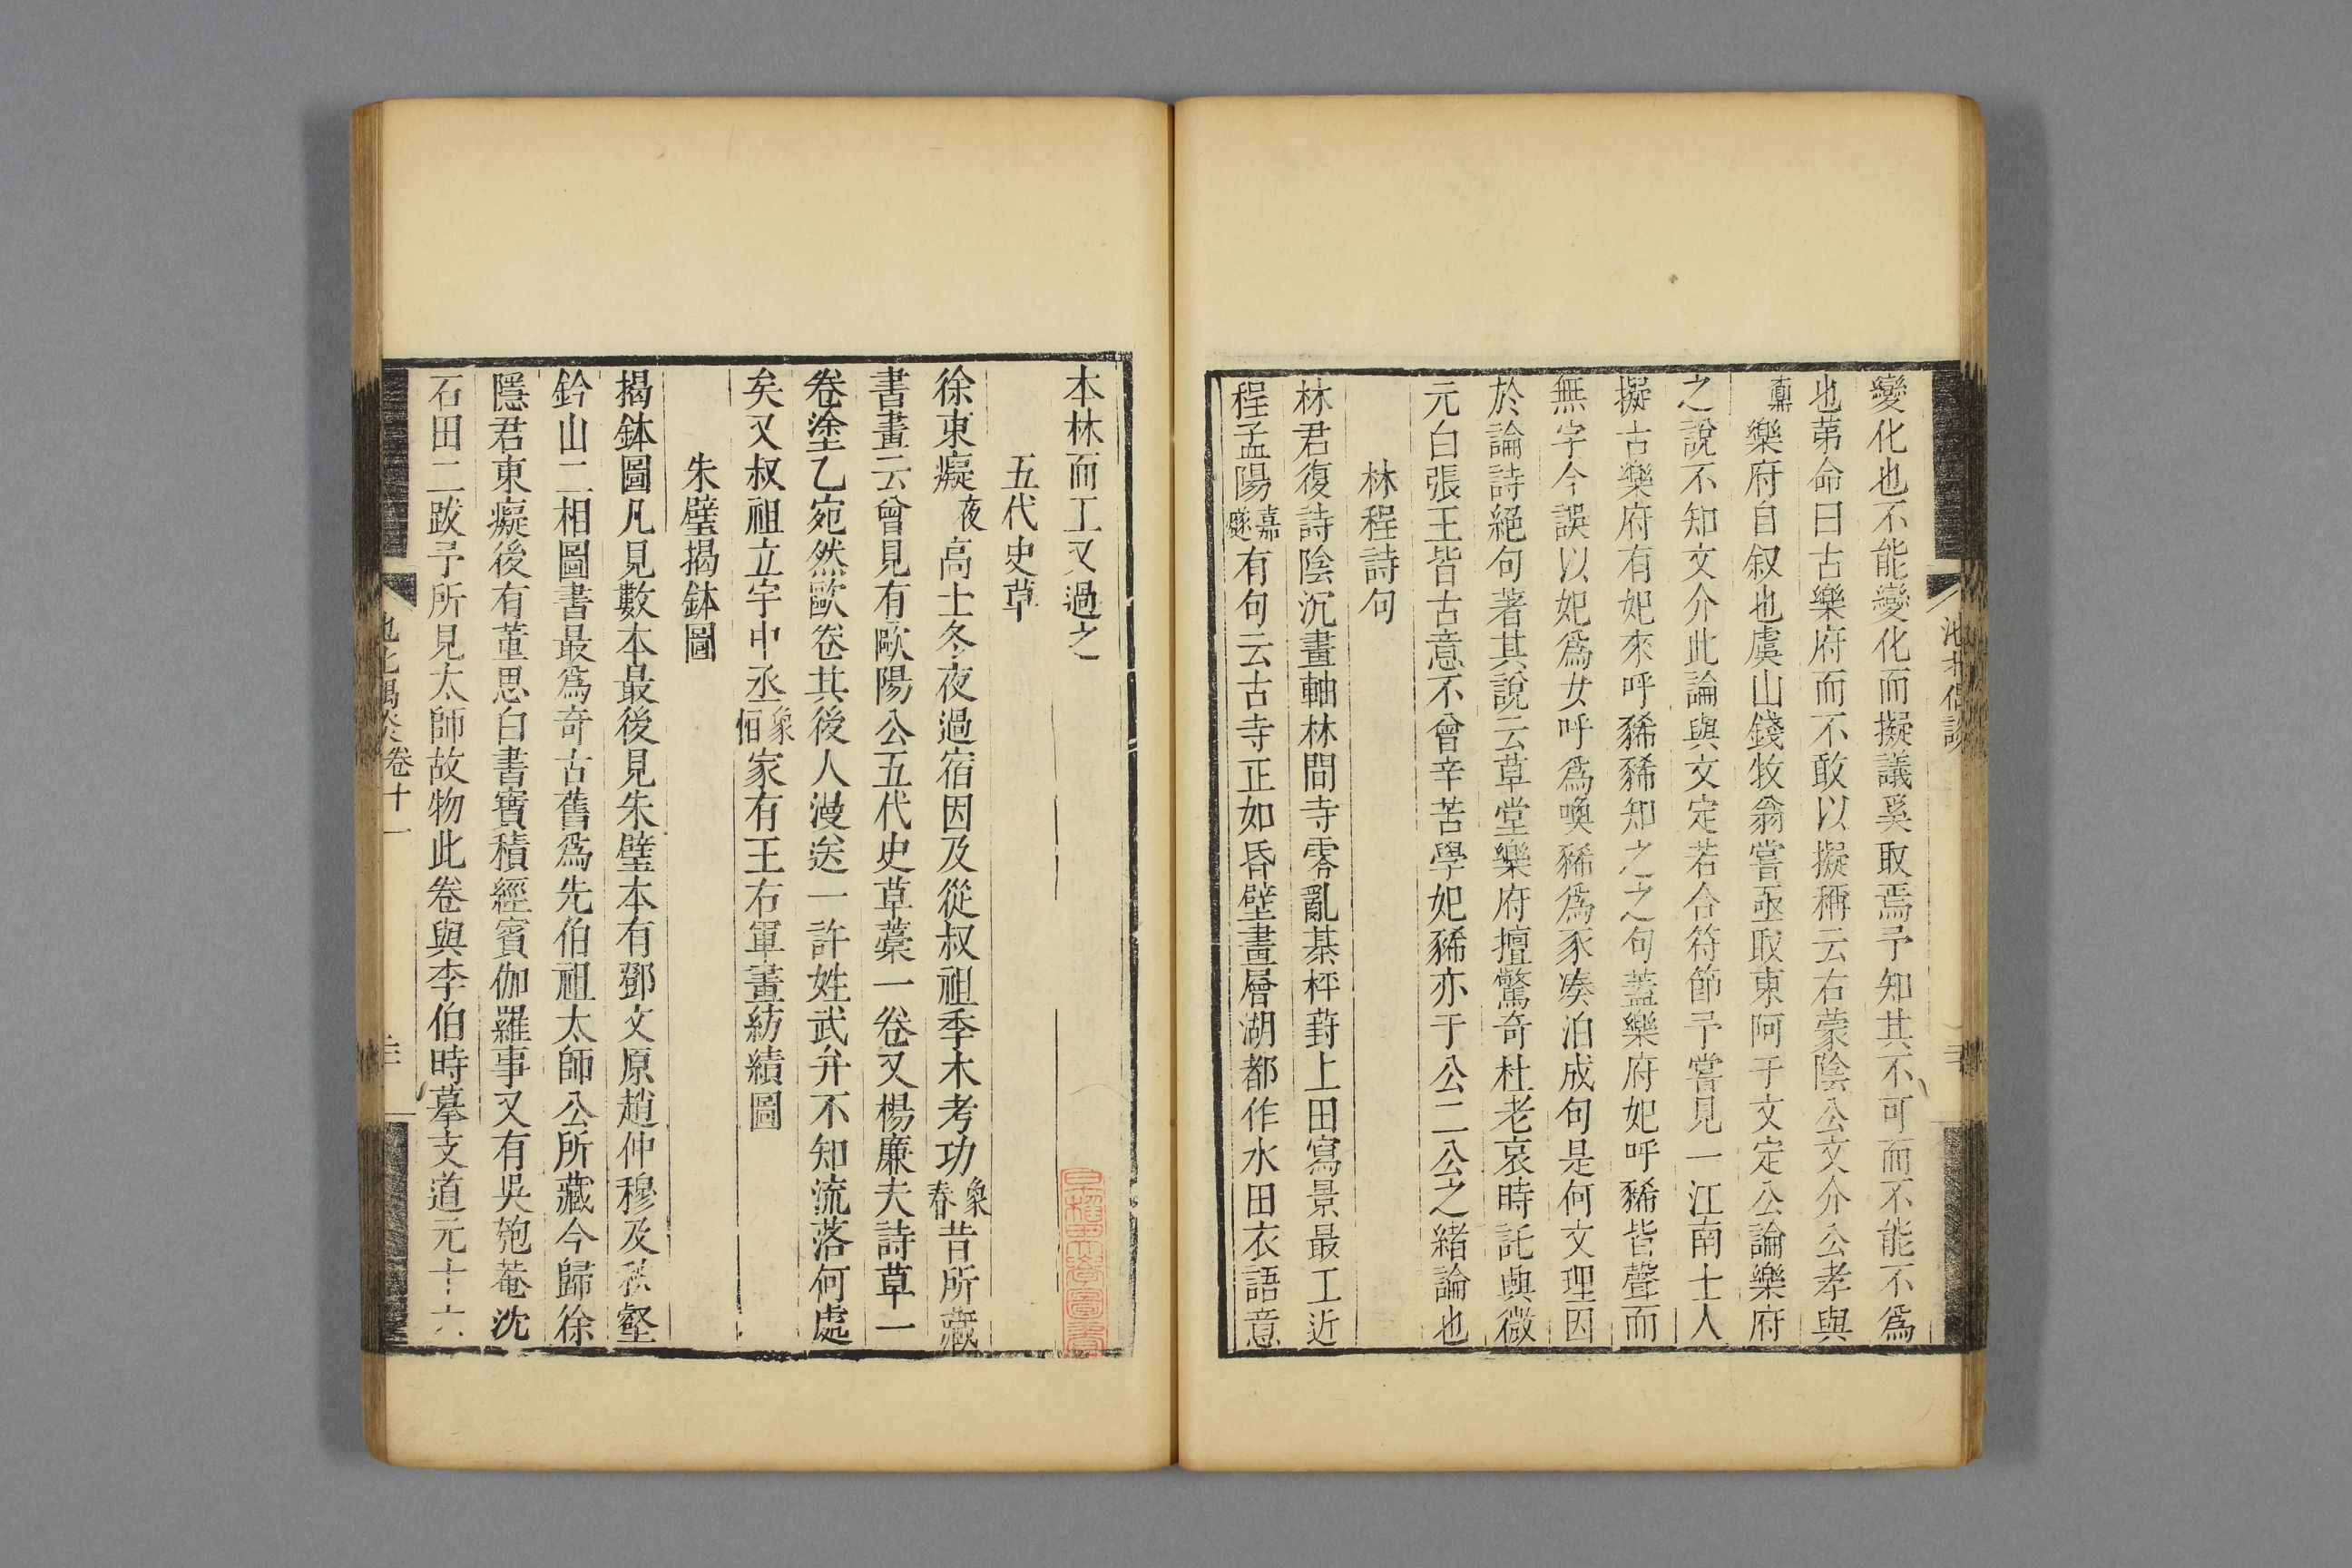 池北偶談
變化也不能變化而擬議奚取焉予知其不可而不能不爲
也第命曰古樂府而不敢以擬稱云右蒙陰公文介公孝與
鼐樂府自叙也虞山錢牧翁嘗亟取東阿于文定公論樂府
之說不知文介此論與文定若合符節予嘗見一江南士人
擬古樂府有妃來呼豨豨知之之句蓋樂府妃呼豨皆聲而
無字今誤以妃爲女呼爲喚豨爲豕凑泊成句是何文理因
於論詩絕句著其說云草堂樂府擅驚奇杜老哀時託興微
元白張王皆古意不曾辛苦學妃豨亦于公二公之緒論也
林程詩句
林君復詩陰沉畫軸林間寺零亂棊枰葑上田寫景最工近
程孟陽嘉燧有句云古寺正如昏壁畫層湖都作水田衣語意
本林而工又過之
五代史草
徐東癡夜高士冬夜過宿因及從叔祖季木考功象春昔所藏
書畫云曾見有歐陽公五代史草藁一卷又楊廉夫詩草一
卷塗乙宛然歐卷其後人漫送一許姓武弁不知流落何處
矣又叔祖立宇中丞象恒家有王右軍畫紡績圖
朱璧揭鉢圖
揭鉢圖凡見數本最後見朱璧本有鄧文原趙仲穆及秋壑
鈐山二相圖書最爲奇古舊爲先伯祖太師公所藏今歸徐
隱君東癡後有董思白書寶積經賓伽羅事又有吳匏菴沈
石田二跋予所見太師故物此卷與李伯時摹支道元十六
池北偶談卷十一